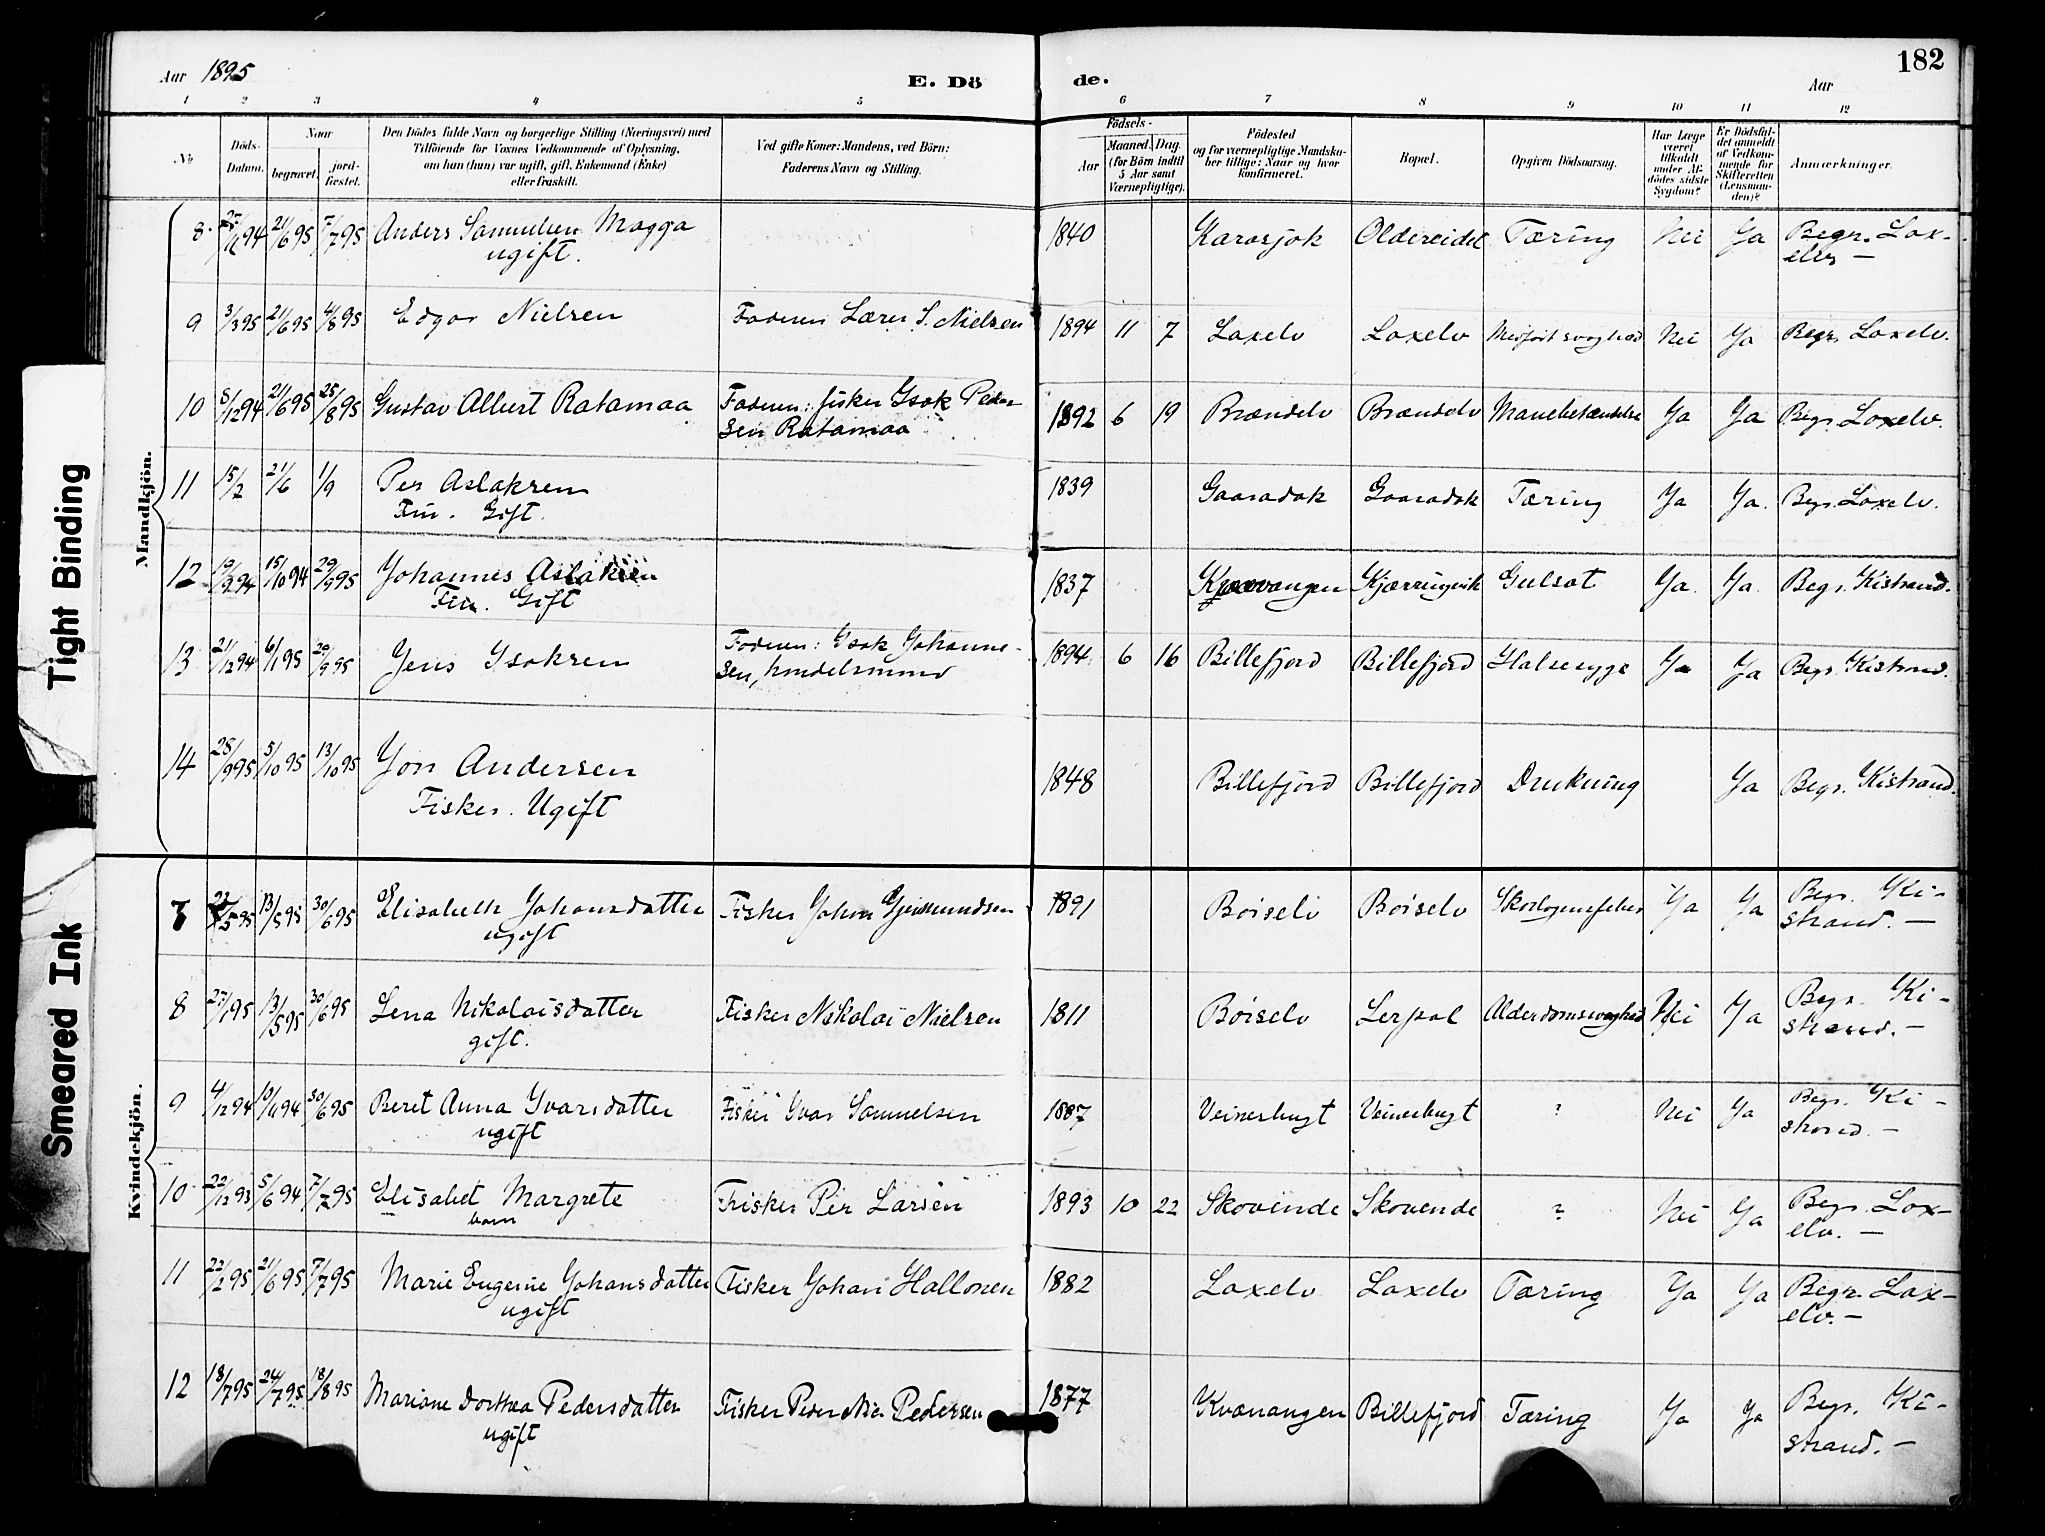 182
Aar 1895
E. Döde.
Aar
1 2 3 4 5 6 7 8 9 10 11 12
No
Döds-Datum.
Naar
begravet.
jord-fæstet.
Den Dödes fulde Navn og borgerlige Stilling (Næringsvei) med
Tilföiende for Voxnes Vedkommende af Oplysning,
om han (hun) var ugift, gift, Enkemand (Enke)
eller fraskilt.
Ved gifte Koner: Mandens, ved Börn:
Faderens Navn og Stilling.
Födsels-
Aar
Maaned. Dag.
(for Börn indtil
5 Aar samt
Værnepligtige).
Födested
og for værnepligtige Mandska-
ber tillige: Naar og hvor
konfirmeret.
Bopæl.
Opgiven Dödsaarsag.
Har Læge
været
tilkaldt
under Af-
dödes sidste
Sygdom?
Er Dödsfal-
det anmeldt
af Vedkom-
mende for
Skifteretten
(Lensman-
den)?
Anmærkninger.
Mandkjön.
8 94 21/6 95 7/7 95 Anders Samuelsen Magga 1840 Karasjok Oldereidet Tæring Nei Ja Begr. Lax-
ugift. elv —
9 3/3 95 21/6 95 4/8 95 Edgar Nielsen Faderen Lærer S. Nielsen 1894 11 7 Laxelv Laxelv Medfödt svaghed Nei Ja Begr. Laxelv.
10 5/12 94 21/6 95 25/8 95 Gustav Albert Ratamaa Faderen: fisker Isak Peder- 1892 6 19 Brændelv Brændelv Mavebetændelse Ja Ja Begr. Laxelv.
sen Ratamaa
11 15/2 21/6 1/9 Per Aslaksen 1839 Gaaradak Gaaradak Tæring Ja Ja. Begr. Laxelv.
Fin. Gift.
12 19/9 94 15/10 94 29/9 95 Johannes Aslaksen 1837 Kjærringvik Gulsot Ja. Ja. Begr. Kistrand.
Fin. Gift
13 21/12 94 6/1 95 29/9 95 Jens Isaksen Faderen: Isak Johanne- 1894 6 16 Billefjord Billefjord Halsesyge Ja Ja Begr. Kistrand.
sen, handelsmand
14 28/9 95 5/10 95 13/10 95 Jon Andersen 1848 Billefjord Billefjord Drukning Ja Begr. Kistrand.
Fisker. Ugift
Kvindekjön.
7 95 13/5 95 30/6 95 Elisabeth Johansdatter Fisker Johan Gjermundsen 1891 Böiselv Böiselv Ja Ja Begr. Ki-
ugift strand. —
8 27/1 95 13/5 95 30/6 95 Lena Nikolaisdatter Fisker Nikolai Nielsen 1811 Böiselv Lerpol Alderdomssvaghed Nei Ja Begr. Ki-
gift. strand. —
9 4/12 94 94 30/6 95 Beret Anna Ivarsdatter Fisker Ivar Samuelsen 1887 Veinesbugt Veinesbugt ? Nei Ja Begr. Ki-
ugift strand. —
10 22/12 93 5/6 94 7/7 95 Elisabet Margrete Fisker Per Larsen 1893 10 22 Skovende Skovende ? Nei Ja Begr. Lax-
barn elv. —
11 22/2 95 21/6 95 7/7 95 Marie Eugenie Johansdatter Fisker Johan Hallonen 1882 Laxelv Laxelv Tæring Ja Ja Begr. Lax-
ugift elv. —
12 18/7 95 24/7 95 18/8 95 Mariane Dorthea Pedersdatter Fisker Peder Pedersen 1877 Kvænangen Billefjord Tæring Ja Ja Begr. Ki-
ugift strand. —
Tight Binding
Smeared Ink